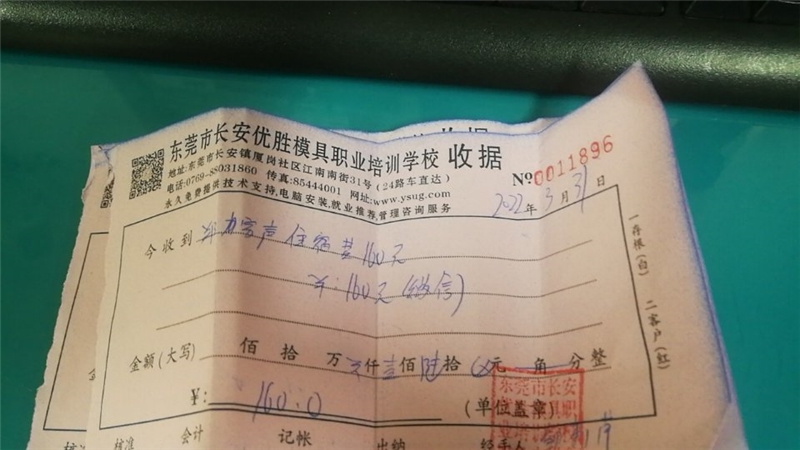 东莞市长安优胜模具职业培训学校 收据
地址:东莞市长安镇厦岗社区江南南街31号(24路车直达)
电话:0769-88031860 传真:85444001 网址:www.ysug.com
永久免费提供技术支持,电脑安装,就业推荐,管理咨询服务
№0011896
2022年3月31日
今收到 住宿费160元
¥:160元(微信)
金额(大写) 佰拾万 仟壹佰陆拾 元 角 分整
¥: 160.0
(单位盖章)
东莞市长安
核准 会计 记帐 出纳 经手人
一存根(白) 二客户(红)